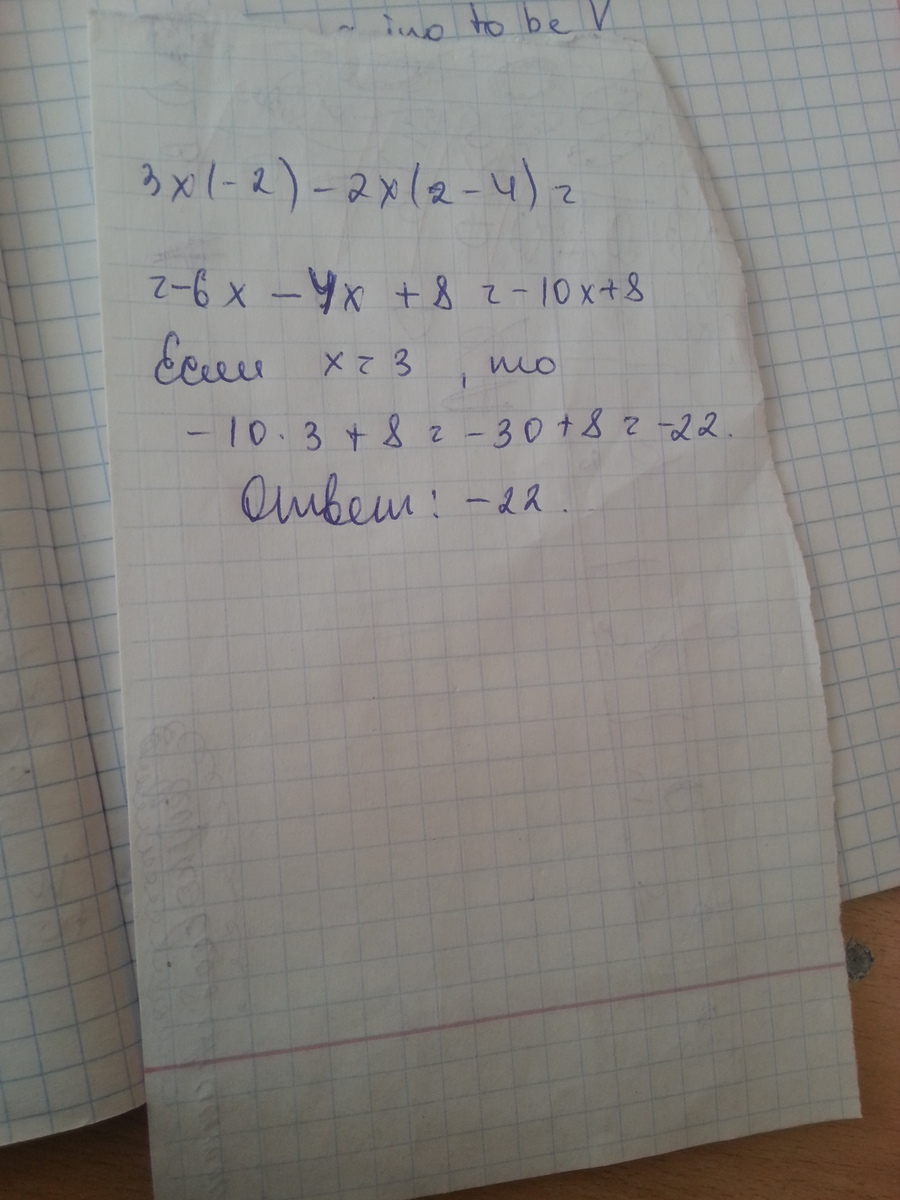 to be
3x(-2)-2x(2-4)=
=-6x-4x+8=-10x+8
Если x=3, то
-10·3+8=-30+8=-22.
Ответ: -22.